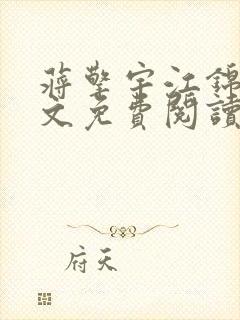 蔣擎宇江錦
文免費閱讀
府天